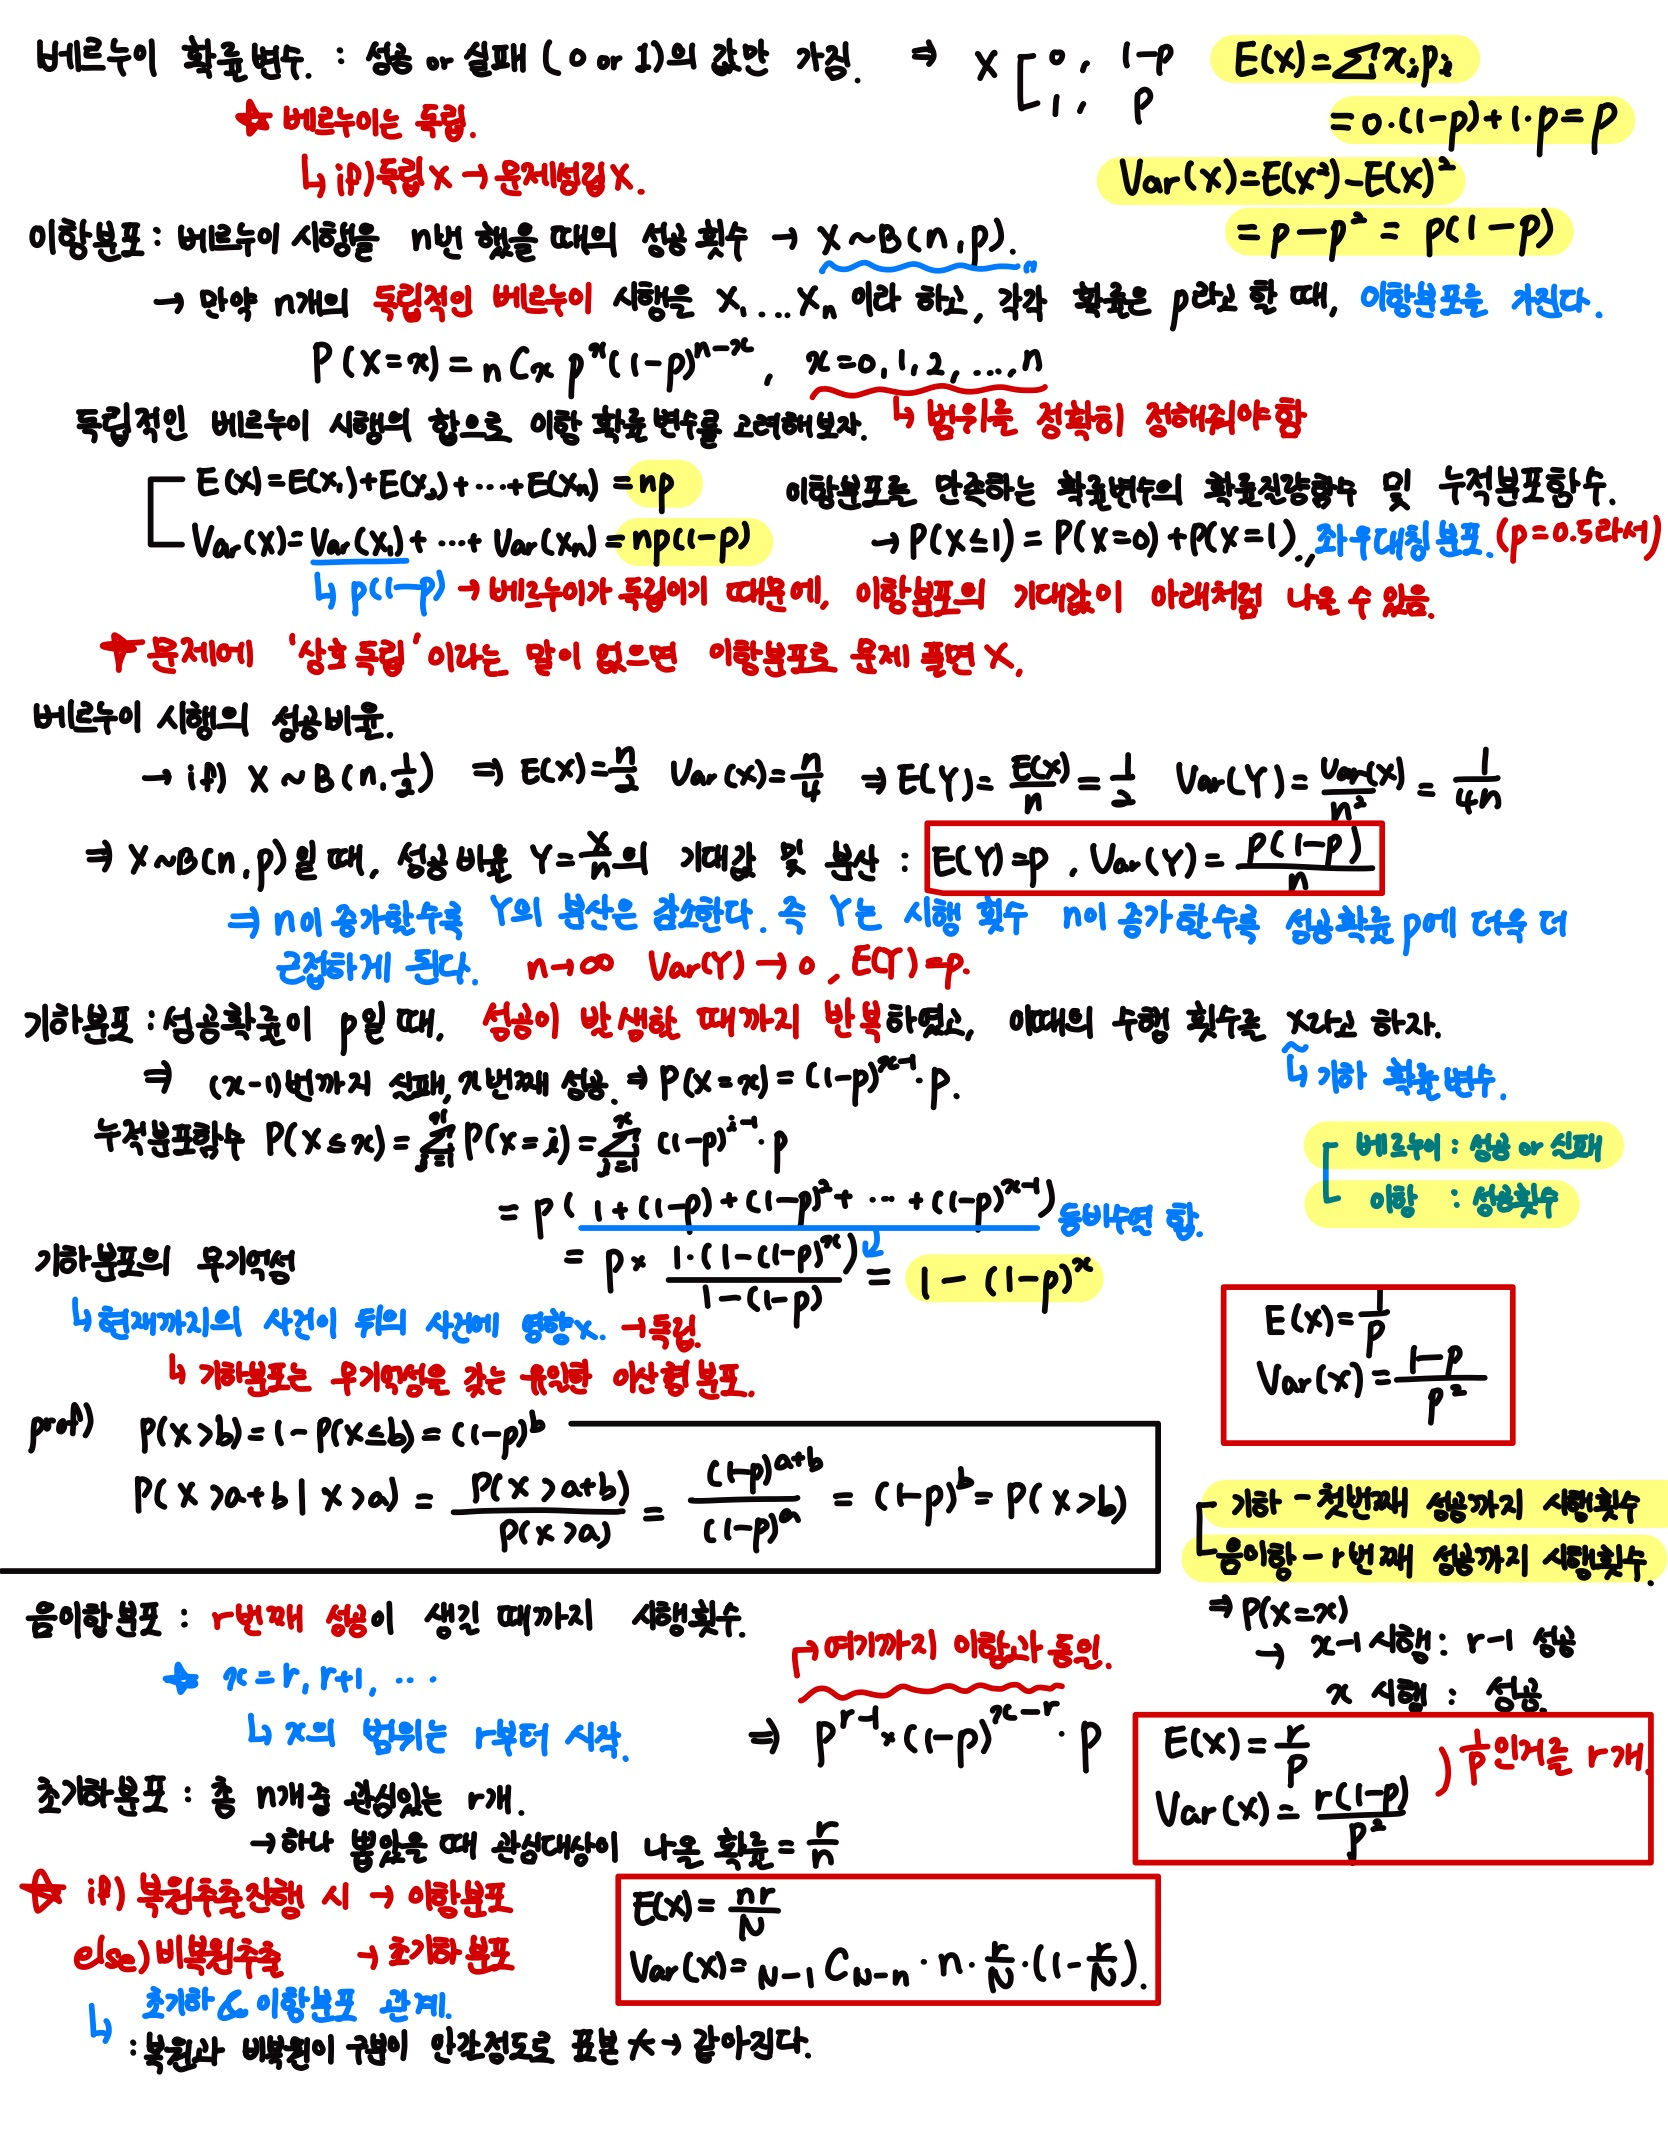 베르누이 확률변수. : 성공 or 실패 ( 0 or 1)의 값만 가짐. ⇒ X [ 0, 1-p
1, p
E(X)=∑xᵢpᵢ
=0·(1-p)+1·p=p
☆ 베르누이는 독립.
↳ if)독립X → 문제성립X.
Var(X)=E(X²)-E(X)²
= p-p² = p(1-p)
이항분포 : 베르누이 시행을 n번 했을 때의 성공 횟수 → X~B(n,p).
→ 만약 n개의 독립적인 베르누이 시행을 X₁...Xₙ 이라 하고, 각각 확률은 p라고 할 때, 이항분포를 가진다.
P(X=x) = ₙCₓ pˣ(1-p)ⁿ⁻ˣ, x=0,1,2,...,n
↳ 범위를 정확히 정해줘야함
독립적인 베르누이 시행의 합으로 이항 확률변수를 고려해보자.
E(X)=E(X₁)+E(X₂)+···+E(Xₙ) = np
Var(X)=Var(X₁)+ ···+ Var(Xₙ) = np(1-p)
이항분포를 만족하는 확률변수의 확률질량함수 및 누적분포함수.
→ P(X≤1) = P(X=0)+P(X=1)., 좌우대칭 분포. (p=0.5라서)
↳ p(1-p) → 베르누이가 독립이기 때문에, 이항분포의 기대값이 아래처럼 나올 수 있음.
☆ 문제에 '상호독립'이라는 말이 없으면 이항분포로 문제 풀면 X.
베르누이 시행의 성공비율.
→ if) X~B(n,1/2) ⇒ E(X)=n/2 Var(X)=n/4 ⇒ E(Y)=E(X)/n=1/2 Var(Y)=Var(X)/n² = 1/4n
⇒ X~B(n,p)일 때, 성공 비율 Y=X/n의 기대값 및 분산 : E(Y)=p , Var(Y)= p(1-p)/n
⇒ n이 증가할수록 Y의 분산은 감소한다. 즉 Y는 시행 횟수 n이 증가할수록 성공확률 p에 더욱 더
근접하게 된다. n→∞ Var(Y)→0, E(Y)=p.
기하분포 : 성공확률이 p일 때, 성공이 발생할 때까지 반복하였고, 이때의 수행 횟수를 X라고 하자.
↳ 기하 확률변수.
⇒ (x-1)번까지 실패, x번째 성공. ⇒ P(X=x) = (1-p)ˣ⁻¹·p.
누적분포함수 P(X≤x) = ∑ᵢ₌₁ˣ P(X=i) = ∑ᵢ₌₁ˣ (1-p)ⁱ⁻¹·p
베르누이 : 성공 or 실패
이항 : 성공횟수
= p( 1+(1-p)+(1-p)²+ ··· +(1-p)ˣ⁻¹) 등비수열 합.
= p × 1·(1-(1-p)ˣ) / 1-(1-p) = 1-(1-p)ˣ
기하분포의 무기억성
↳ 현재까지의 사건이 뒤의 사건에 영향X. → 독립.
↳ 기하분포는 무기억성을 갖는 유일한 이산형 분포.
E(X)=1/p
Var(X)=1-p/p²
prof) P(X>b)=1-P(X≤b)=(1-p)ᵇ
P(X>a+b | X>a) = P(X>a+b)/P(X>a) = (1-p)ᵃ⁺ᵇ/(1-p)ᵃ = (1-p)ᵇ= P(X>b)
기하 - 첫번째 성공까지 시행횟수
음이항 - r번째 성공까지 시행횟수.
⇒ P(X=x)
→ x-1 시행 : r-1 성공
x 시행 : 성공.
음이항분포 : r번째 성공이 생길 때까지 시행횟수.
☆ x=r, r+1, ···
↳ x의 범위는 r부터 시작.
여기까지 이항과 동일.
⇒ pʳ⁻¹×(1-p)ˣ⁻ʳ·p
E(X)=r/p
Var(X)=r(1-p)/p²
) 1/p인거를 r개.
초기하분포 : 총 n개 중 관심있는 r개.
→ 하나 뽑았을 때 관심대상이 나올 확률 = r/n
☆ if) 복원추출진행 시 → 이항분포
else) 비복원추출 → 초기하분포
E(X)= nr/N
Var(X)= ₙ₋₁C_N-n · n · r/N · (1-r/N).
초기하 & 이항분포 관계.
↳ : 복원과 비복원이 구분이 안갈정도로 표본 大 → 같아진다.